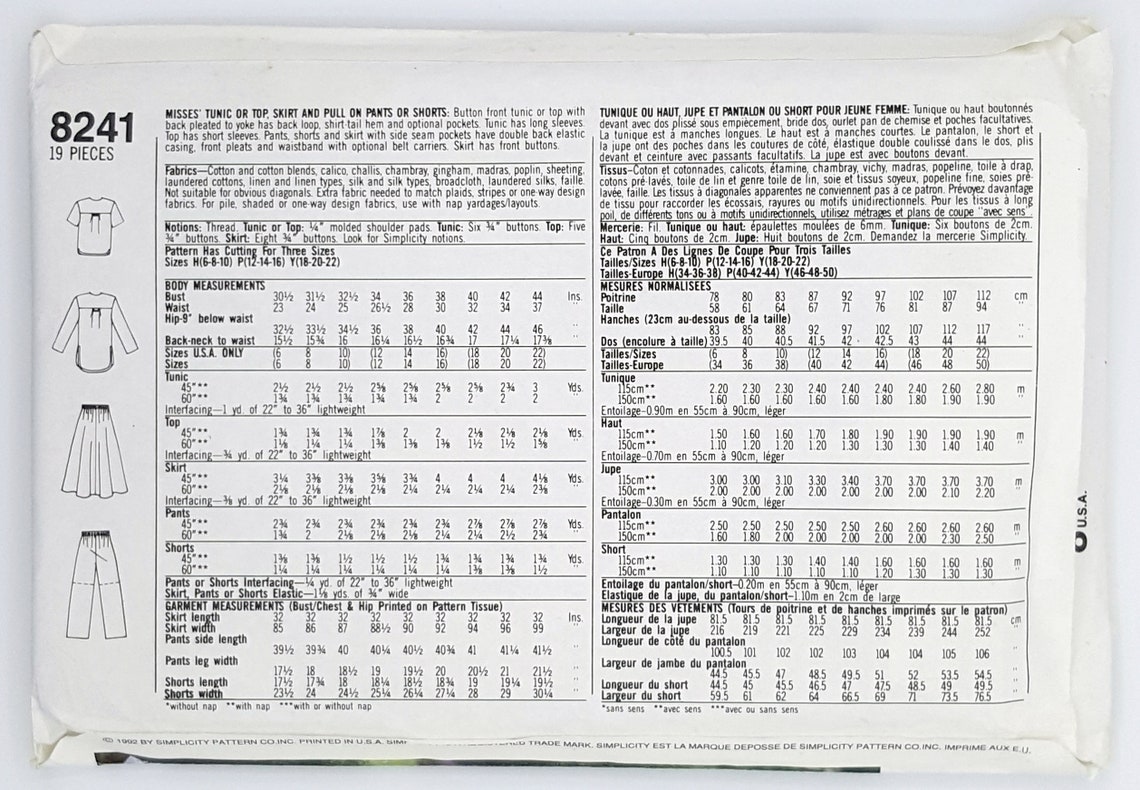 8241
19 PIECES
MISSES' TUNIC OR TOP, SKIRT AND PULL ON PANTS OR SHORTS: Button front tunic or top with
back pleated to yoke has back loop, shirt-tail hem and optional pockets. Tunic has long sleeves.
Top has short sleeves. Pants, shorts and skirt with side seam pockets have double back elastic
casing, front pleats and waistband with optional belt carriers. Skirt has front buttons.
Fabrics—Cotton and cotton blends, calico, challis, chambray, gingham, madras, poplin, sheeting,
laundered cottons, linen and linen types, silk and silk types, broadcloth, laundered silks, faille.
Not suitable for obvious diagonals. Extra fabric needed to match plaids, stripes or one-way design
fabrics. For pile, shaded or one-way design fabrics, use with nap yardages/layouts.
Notions: Thread. Tunic or Top: ¼" molded shoulder pads. Tunic: Six ¾" buttons. Top: Five
¾" buttons. Skirt: Eight ¾" buttons. Look for Simplicity notions.
Pattern Has Cutting For Three Sizes
Sizes H(6-8-10) P(12-14-16) Y(18-20-22)
BODY MEASUREMENTS
Bust 30½ 31½ 32½ 34 36 38 40 42 44 Ins.
Waist 23 24 25 26½ 28 30 32 34 37 "
Hip-9" below waist
32½ 33½ 34½ 36 38 40 42 44 46 "
Back-neck to waist 15½ 15¾ 16 16¼ 16½ 16¾ 17 17¼ 17⅜ "
Sizes U.S.A. ONLY (6 8 10) (12 14 16) (18 20 22)
Sizes (6 8 10) (12 14 16) (18 20 22)
Tunic
45"*** 2½ 2½ 2½ 2⅝ 2⅝ 2⅝ 2⅝ 2¾ 3 Yds.
60"*** 1¾ 1¾ 1¾ 1¾ 1¾ 2 2 2 2 "
Interfacing—1 yd. of 22" to 36" lightweight
Top
45"*** 1¾ 1¾ 1¾ 1⅞ 2 2 2⅛ 2⅛ 2⅛ Yds.
60"*** 1⅛ 1¼ 1¼ 1⅜ 1⅜ 1⅜ 1½ 1½ 1⅝ "
Interfacing—¾ yd. of 22" to 36" lightweight
Skirt
45"*** 3¼ 3⅜ 3⅜ 3⅝ 3¾ 4 4 4 4⅛ Yds.
60"*** 2⅛ 2⅛ 2⅛ 2⅛ 2¼ 2¼ 2¼ 2¼ 2⅜ "
Interfacing—⅜ yd. of 22" to 36" lightweight
Pants
45"*** 2¾ 2¾ 2¾ 2¾ 2¾ 2¾ 2⅞ 2⅞ 2⅞ Yds.
60"*** 1¾ 2 2⅛ 2⅛ 2⅛ 2¼ 2¼ 2½ 2¾ "
Shorts
45"*** 1⅜ 1⅜ 1½ 1½ 1½ 1¾ 1¾ 1¾ 1¾ Yds.
60"*** 1¼ 1¼ 1¼ 1¼ 1¼ 1¼ 1⅜ 1⅜ 1½ "
Pants or Shorts Interfacing—¼ yd. of 22" to 36" lightweight
Skirt, Pants or Shorts Elastic—1⅛ yds. of ¾" wide
GARMENT MEASUREMENTS (Bust/Chest & Hip Printed on Pattern Tissue)
Skirt length 32 32 32 32 32 32 32 32 32 Ins.
Skirt width 85 86 87 88½ 90 92 94 96 99 "
Pants side length
39½ 39¾ 40 40¼ 40½ 40¾ 41 41¼ 41½ "
Pants leg width
17½ 18 18½ 19 19½ 20 20½ 21 21½ "
Shorts length 17½ 17¾ 18 18¼ 18½ 18¾ 19 19¼ 19½ "
Shorts width 23½ 24 24½ 25¼ 26¼ 27¼ 28 29 30¼ "
*without nap **with nap ***with or without nap
TUNIQUE OU HAUT, JUPE ET PANTALON OU SHORT POUR JEUNE FEMME: Tunique ou haut boutonnés
devant avec dos plissé sous empiècement, bride dos, ourlet pan de chemise et poches facultatives.
La tunique est à manches longues. Le haut est à manches courtes. Le pantalon, le short et
la jupe ont des poches dans les coutures de côté, élastique double coulissé dans le dos, plis
devant et ceinture avec passants facultatifs. La jupe est avec boutons devant.
Tissus—Coton et cotonnades, calicots, étamine, chambray, vichy, madras, popeline, toile à drap,
cotons pré-lavés, toile de lin et genre toile de lin, soie et tissus soyeux, popeline fine, soies pré-
lavée, faille. Les tissus à diagonales apparentes ne conviennent pas à ce patron. Prévoyez davantage
de tissu pour raccorder les écossais, rayures ou motifs unidirectionnels. Pour les tissus à long
poil, de différents tons ou à motifs unidirectionnels, utilisez métrages et plans de coupe "avec sens".
Mercerie: Fil. Tunique ou haut: épaulettes moulées de 6mm. Tunique: Six boutons de 2cm.
Haut: Cinq boutons de 2cm. Jupe: Huit boutons de 2cm. Demandez la mercerie Simplicity.
Ce Patron A Des Lignes De Coupe Pour Trois Tailles
Tailles/Sizes H(6-8-10) P(12-14-16) Y(18-20-22)
Tailles-Europe H(34-36-38) P(40-42-44) Y(46-48-50)
MESURES NORMALISEES
Poitrine 78 80 83 87 92 97 102 107 112 cm
Taille 58 61 64 67 71 76 81 87 94 "
Hanches (23cm au-dessous de la taille)
83 85 88 92 97 102 107 112 117 "
Dos (encolure à taille) 39.5 40 40.5 41.5 42 42.5 43 44 44 "
Tailles/Sizes (6 8 10) (12 14 16) (18 20 22)
Tailles-Europe (34 36 38) (40 42 44) (46 48 50)
Tunique
115cm** 2.20 2.30 2.30 2.40 2.40 2.40 2.40 2.60 2.80 m
150cm** 1.60 1.60 1.60 1.60 1.60 1.80 1.80 1.90 1.90 "
Entoilage-0.90m en 55cm à 90cm, léger
Haut
115cm** 1.50 1.60 1.60 1.70 1.80 1.90 1.90 1.90 1.90 m
150cm** 1.10 1.20 1.20 1.20 1.30 1.30 1.30 1.40 1.40 "
Entoilage-0.70m en 55cm à 90cm, léger
Jupe
115cm** 3.00 3.00 3.10 3.30 3.40 3.70 3.70 3.70 3.70 m
150cm** 2.00 2.00 2.00 2.00 2.00 2.00 2.00 2.10 2.20 "
Entoilage-0.30m en 55cm à 90cm, léger
Pantalon
115cm** 2.50 2.50 2.50 2.50 2.50 2.60 2.60 2.60 2.60 m
150cm** 1.60 1.80 2.00 2.00 2.00 2.00 2.00 2.30 2.50 "
Short
115cm** 1.30 1.30 1.30 1.40 1.40 1.60 1.60 1.60 1.60 m
150cm** 1.10 1.10 1.10 1.10 1.10 1.20 1.30 1.30 1.30 "
Entoilage du pantalon/short-0.20m en 55cm à 90cm, léger
Elastique de la jupe, du pantalon/short-1.10m en 2cm de large
MESURES DES VETEMENTS (Tours de poitrine et de hanches imprimés sur le patron)
Longueur de la jupe 81.5 81.5 81.5 81.5 81.5 81.5 81.5 81.5 81.5 cm
Largeur de la jupe 216 219 221 225 229 234 239 244 252 "
Longueur de côté du pantalon
100.5 101 102 102 103 104 104 105 106 "
Largeur de jambe du pantalon
44.5 45.5 47 48.5 49.5 51 52 53.5 54.5 "
Longueur du short 44.5 45 45.5 46.5 47 47.5 48.5 49 49.5 "
Largeur du short 59.5 61 62 64 66.5 69 71 73.5 76.5 "
*sans sens **avec sens ***avec ou sans sens
U.S.A.
© 1992 BY SIMPLICITY PATTERN CO.INC. PRINTED IN U.S.A. TRADE MARK. SIMPLICITY EST LA MARQUE DEPOSSE DE SIMPLICITY PATTERN CO.INC. IMPRIME AUX E.U.